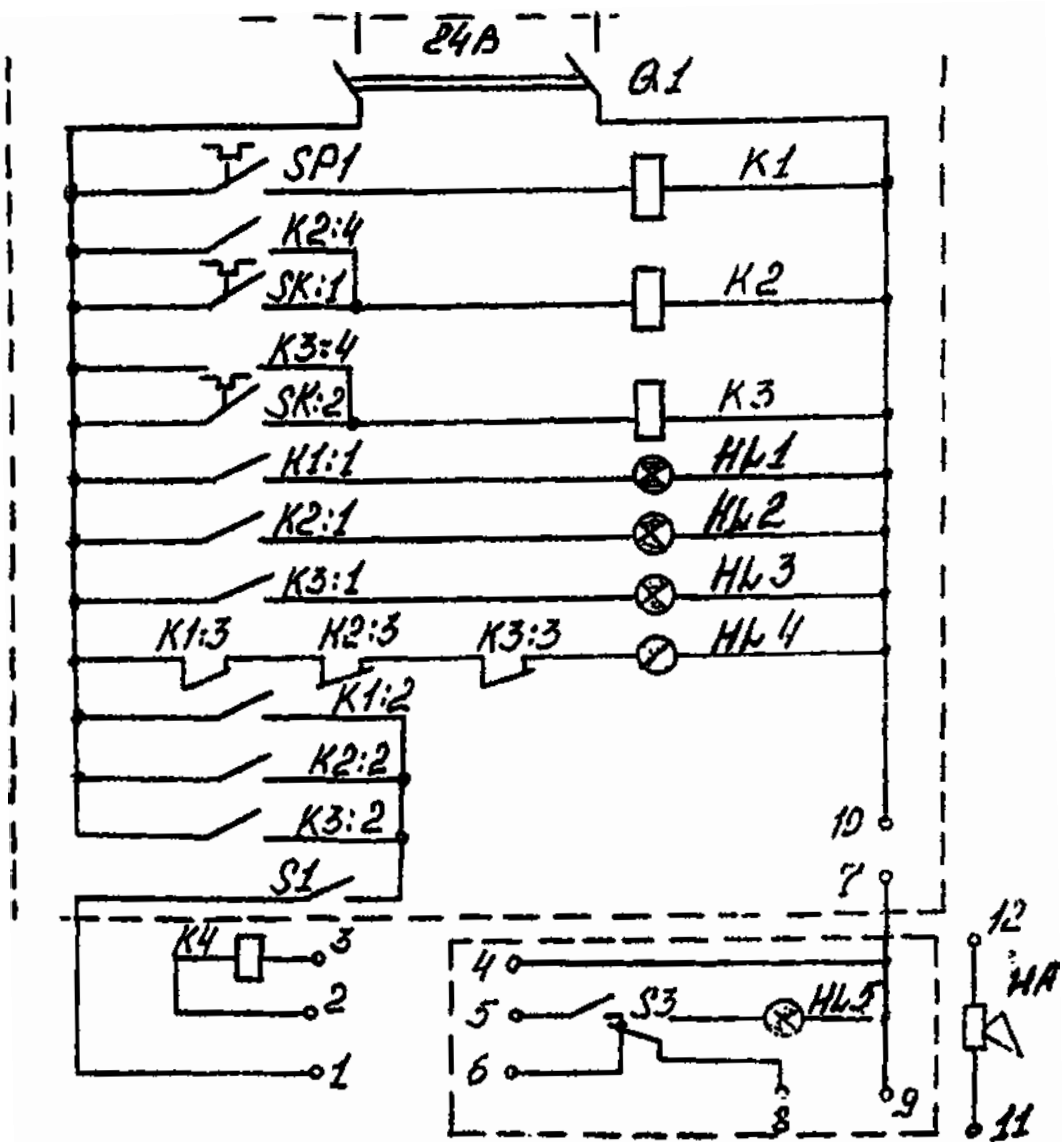 24В
Q1
SP1
K1
K2:4
SK:1
K2
K3:4
SK:2
K3
K1:1
HL1
K2:1
HL2
K3:1
HL3
K1:3
K2:3
K3:3
HL4
K1:2
K2:2
K3:2
10
S1
7
K4
3
2
1
4
5
S3
HL5
6
8
9
12
HA
11